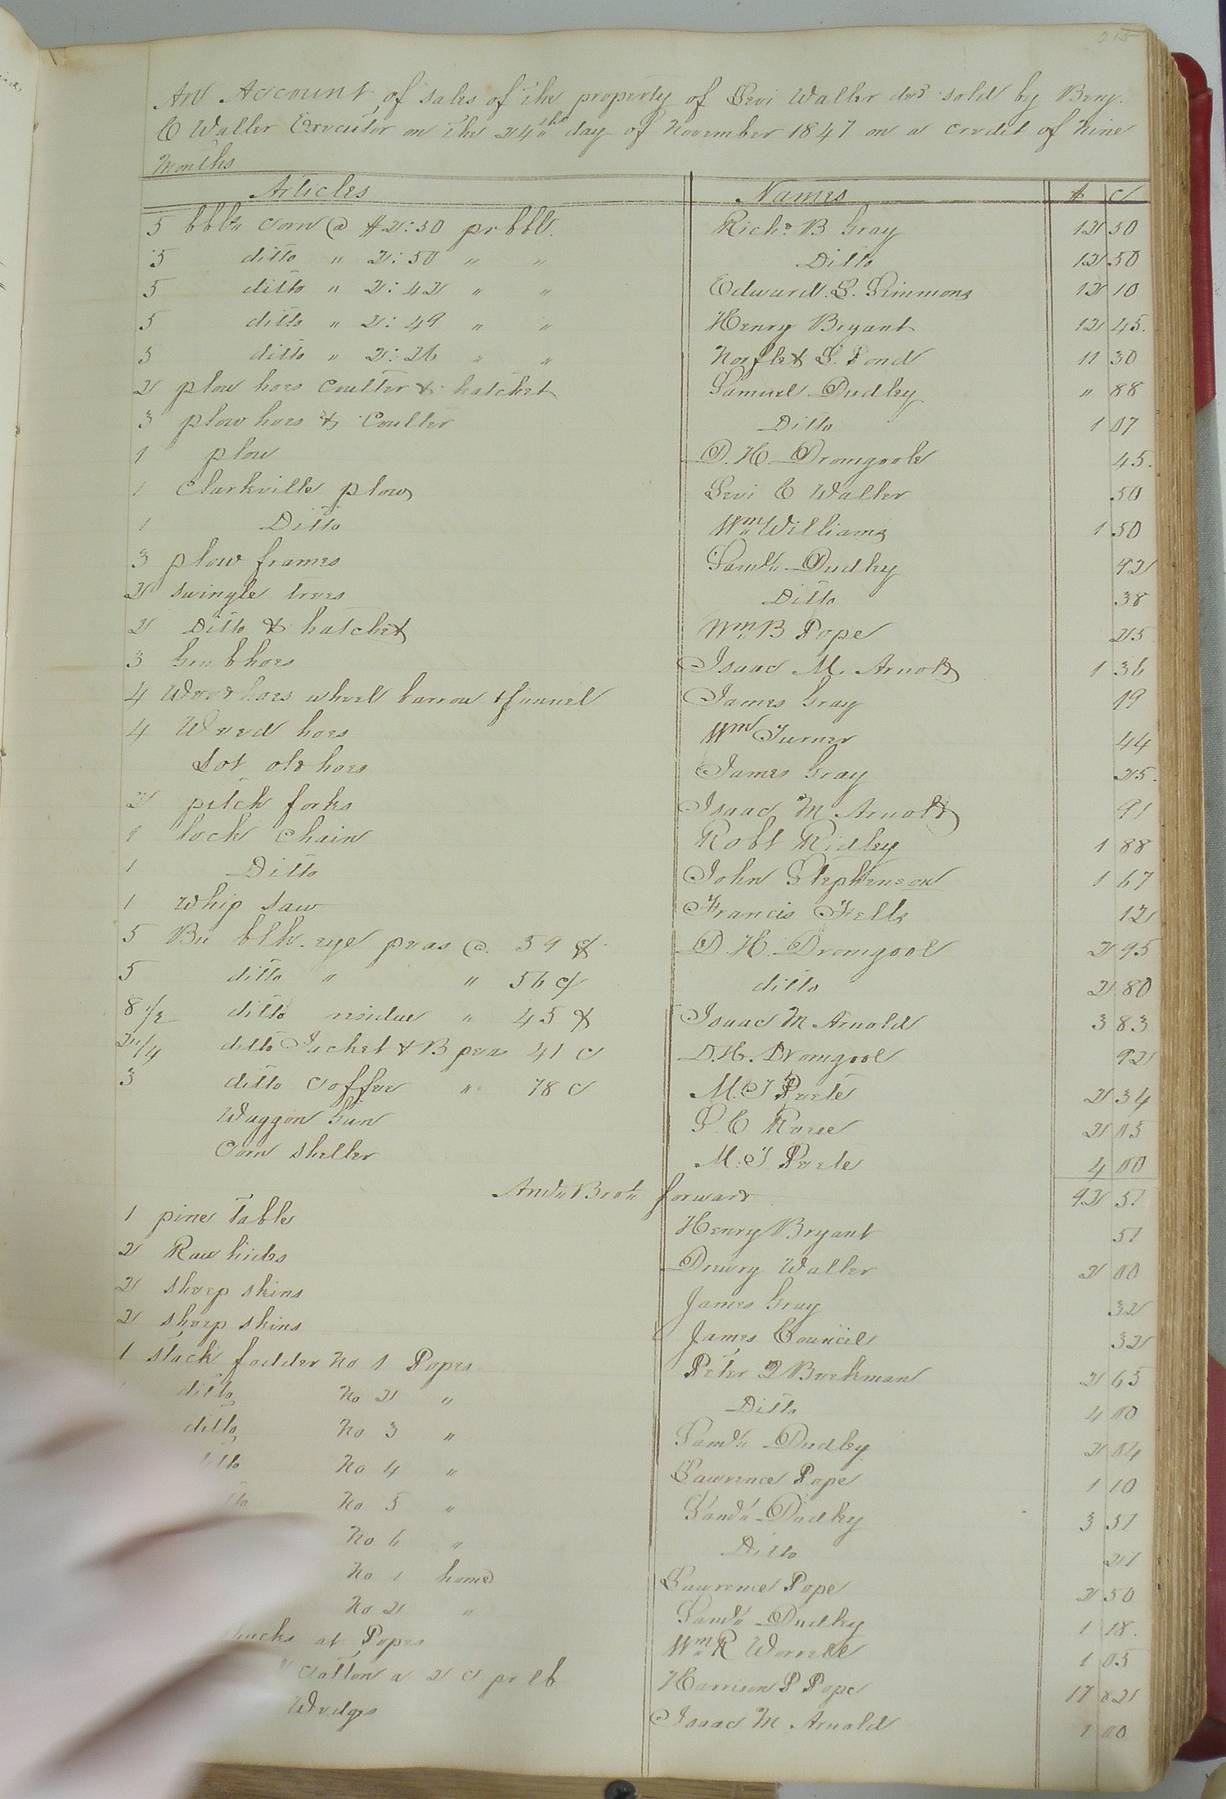 215
An Account of sales of the property of Levi Waller decd sold by Benj.
C Waller Executor on the 24th day of November 1847 on a credit of nine
Months
Articles Names $ c
5 bbls corn @ $2:50 pr bbl. Richd B Gray 12 50
5 ditto " 2:50 " " Ditto 12 50
5 ditto " 2:42 " " Edward S. Simmons 12 10
5 ditto " 2:49 " " Henry Bryant 12 45
5 ditto " 2:26 " " Norflet S. Pond 11 30
2 plow hoes Coulter & hatchet Samuel Dudley " 88
3 plow hoes & Coulter Ditto 1 07
1 plow D. H. Dromgoole 45
1 Clarkville plow Levi C Waller 50
1 Ditto Wm Williams 1 50
3 plow frames Saml Dudley 42
2 swingle trees Ditto 38
2 Ditto & hatchet Wm B Pope 25
3 Grub hoes Isaac M. Arnold 1 36
4 Weed hoes wheel barrow & funnel James Gray 19
4 Weed hoes Wm Turner 44
Lot old hoes James Gray 25
2 pitch forks Isaac M Arnold 91
1 lock Chain Robt Ridley 1 88
1 Ditto John Stephenson 1 67
1 whip saw Francis Fells 12
5 Bu blk eye peas @ 59 c D. H. Dromgool 2 95
5 ditto " " 56 c ditto 2 80
8 1/2 ditto residue " 45 c Isaac M Arnold 3 83
2 1/4 ditto & B peas 41 c D. H. Dromgool 92
3 ditto Coffee " 78 c M. J. Peete 2 34
Waggon Gun S. C 2 05
Corn sheller M. J Peete 4 00
Amt Brot forward 92 51
1 pine Table Henry Bryant 51
2 Raw hides Drewry Waller 2 00
2 sheep skins James Gray 32
2 sheep skins James Council 32
1 stack fodder No 1 Popes Peter Buckman 2 65
ditto No 2 " Ditto 4 00
ditto No 3 " Saml Dudley 2 04
No 4 " Lawrence Pope 1 10
No 5 " Saml Dudley 3 51
No 6 " Ditto 21
No 1 home Lawrence Pope 2 50
No 2 " Saml Dudley 1 18
at Popes Wm R 1 05
Cotton a 2 c pr lb Harrison P Pope 17 82
Wedges Isaac M Arnold 1 00